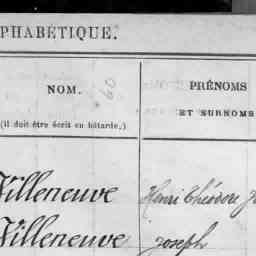 PHABÉTIQUE.
NOM.
60
PRÉNOMS
ET SURNOMS
(il doit être écrit en bâtarde,)
Villeneuve Henri Théodore
Villeneuve Joseph